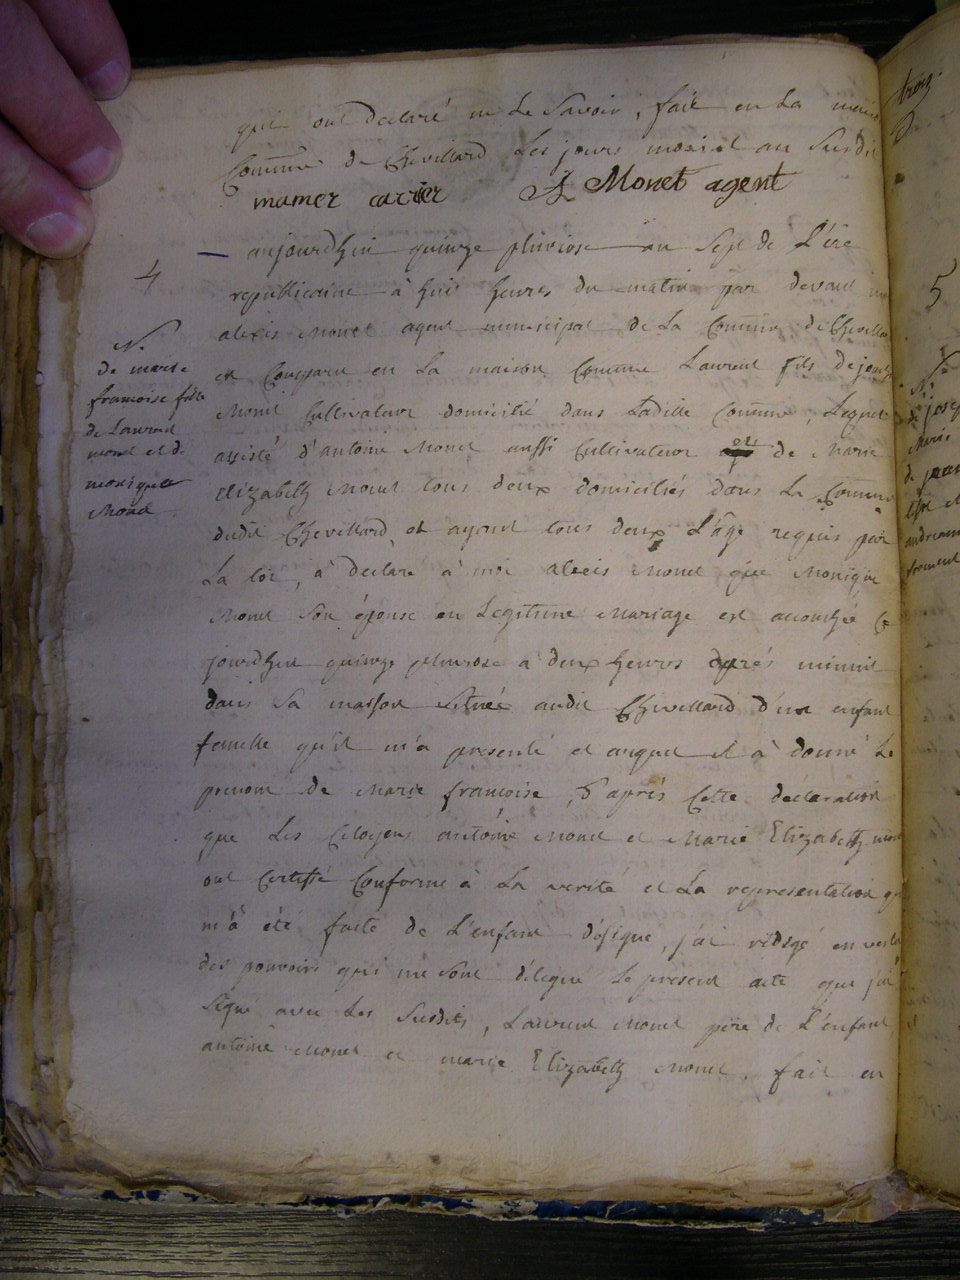 qui ont declaré ne Le Savoir, fait en La maison
Commune de Chevillard Les jours mois et an Susdit
mamer carrier A Monet agent
aujourdhui quinze pluviose an Sept de L'ère
republicaine à huit heures du matin par devant moi
alexis Monet agent municipal de La Commune de Chevillard
est Comparu en La maison Commune Laurent fils de joseph
Monet Cultivateur domicilié dans Ladite Commune Lequel
assisté d'antoine Monet aussi Cultivateur et de Marie
Elizabeth Monet tous deux domiciliés dans La Commune
dudit Chevillard et ayant tous deux L'âge requis par
La loi, à declaré à moi alexis Monet que Monique
Monet Son épouse en Legitime Mariage est accouchée Ce
jourdhui quinze pluviose à deux heures après minuit
dans Sa maison située audit Chevillard d'un enfant
femelle qu'il m'a presenté et auquel il à donné Le
prenom de Marie françoise, D'après Cette déclaration
que Les Citoyens antoine Monet et Marie Elizabeth monet
ont Certifié Conforme à La verité et La representation qui
m'à été faite de L'enfant désigné, j'ai rédigé en vertu
des pouvoirs qui me sont délégué Le present acte que j'ai
Signé avec Les Susdits, Laurent Monet père de L'enfant
antoine Monet et marie Elizabeth Monet. fait en
4
N.
de marie
francoise fille
de Laurent
monet et de
monique
Monet
5
N.
de josep
Marie
de jean
et